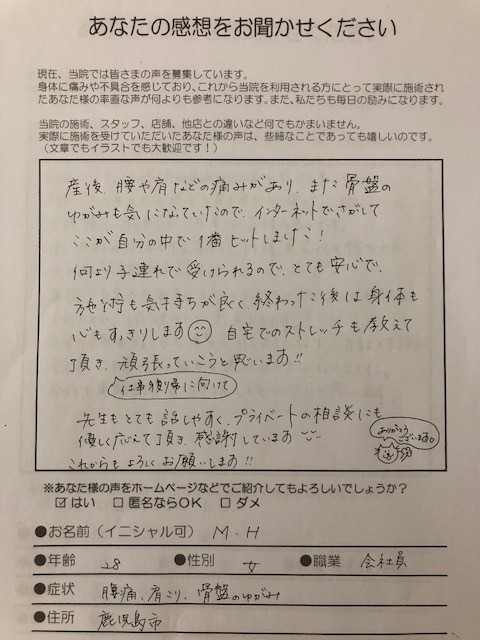 あなたの感想をお聞かせください
現在、当院では皆さまの声を募集しています。
身体に痛みや不具合を感じており、これから当院を利用される方にとって実際に施術され
たあなた様の率直な声が何よりも参考になります。また、私たちも毎日の励みになります。
当院の施術、スタッフ、店舗、他店との違いなど何でもかまいません。
実際に施術を受けていただいたあなた様の声は、些細なことであっても嬉しいのです。
（文章でもイラストでも大歓迎です！）
産後 腰や肩などの痛みがあり、また骨盤の
ゆがみも気になっていたので、インターネットでさがして
ここが自分の中で1番ヒットしました!
何より子連れで受けられるので、とても安心で、
施術も気持ちが良く、終わった後は身体も
心もすっきりします 自宅でのストレッチも教えて
頂き、頑張っていこうと思います!!
仕事復帰に向けて
先生もとても話しやすく、プライベートの相談にも
優しく応えて頂き、感謝しています
ありがとう
ございます。
これからもよろしくお願いします!!
※あなた様の声をホームページなどでご紹介してもよろしいでしょうか？
☑ はい □ 匿名ならOK □ ダメ
●お名前（イニシャル可） M.H
●年齢 28 ●性別 女 ●職業 会社員
●症状 腰痛、肩こり、骨盤のゆがみ
●住所 鹿児島市